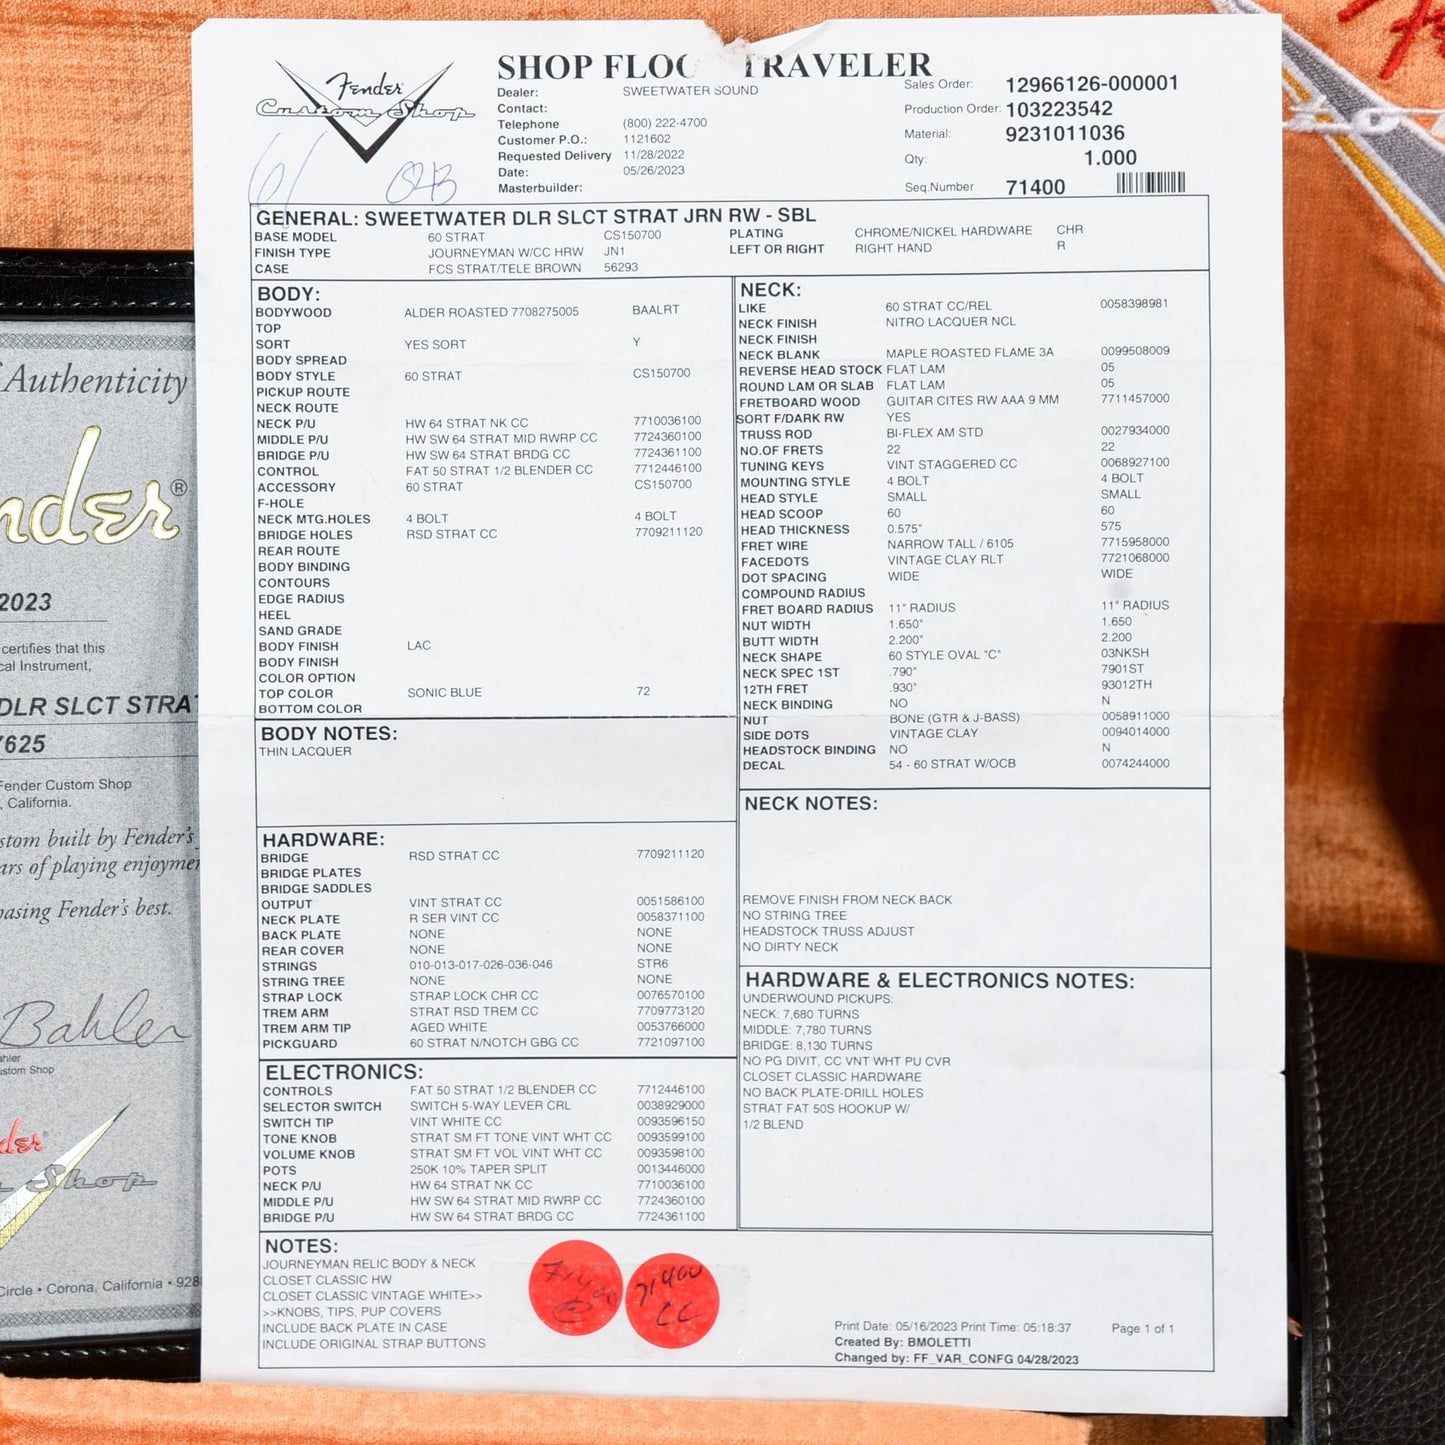 Fender
Custom Shop
SHOP FLOO TRAVELER
Dealer: SWEETWATER SOUND
Contact:
Telephone (800) 222-4700
Customer P.O.: 1121602
Requested Delivery 11/28/2022
Date: 05/26/2023
Masterbuilder:
Sales Order: 12966126-000001
Production Order: 103223542
Material: 9231011036
Qty: 1.000
Seq.Number 71400
GENERAL: SWEETWATER DLR SLCT STRAT JRN RW - SBL
BASE MODEL 60 STRAT CS150700 PLATING CHROME/NICKEL HARDWARE CHR
FINISH TYPE JOURNEYMAN W/CC HRW JN1 LEFT OR RIGHT RIGHT HAND R
CASE FCS STRAT/TELE BROWN 56293
BODY:
BODYWOOD ALDER ROASTED 7708275005 BAALRT
TOP
SORT YES SORT Y
BODY SPREAD
BODY STYLE 60 STRAT CS150700
PICKUP ROUTE
NECK ROUTE
NECK P/U HW 64 STRAT NK CC 7710036100
MIDDLE P/U HW SW 64 STRAT MID RWRP CC 7724360100
BRIDGE P/U HW SW 64 STRAT BRDG CC 7724361100
CONTROL FAT 50 STRAT 1/2 BLENDER CC 7712446100
ACCESSORY 60 STRAT CS150700
F-HOLE
NECK MTG.HOLES 4 BOLT 4 BOLT
BRIDGE HOLES RSD STRAT CC 7709211120
REAR ROUTE
BODY BINDING
CONTOURS
EDGE RADIUS
HEEL
SAND GRADE
BODY FINISH LAC
BODY FINISH
COLOR OPTION
TOP COLOR SONIC BLUE 72
BOTTOM COLOR
BODY NOTES:
THIN LACQUER
HARDWARE:
BRIDGE RSD STRAT CC 7709211120
BRIDGE PLATES
BRIDGE SADDLES
OUTPUT VINT STRAT CC 0051586100
NECK PLATE R SER VINT CC 0058371100
BACK PLATE NONE NONE
REAR COVER NONE NONE
STRINGS 010-013-017-026-036-046 STR6
STRING TREE NONE NONE
STRAP LOCK STRAP LOCK CHR CC 0076570100
TREM ARM STRAT RSD TREM CC 7709773120
TREM ARM TIP AGED WHITE 0053766000
PICKGUARD 60 STRAT N/NOTCH GBG CC 7721097100
ELECTRONICS:
CONTROLS FAT 50 STRAT 1/2 BLENDER CC 7712446100
SELECTOR SWITCH SWITCH 5-WAY LEVER CRL 0038929000
SWITCH TIP VINT WHITE CC 0093596150
TONE KNOB STRAT SM FT TONE VINT WHT CC 0093599100
VOLUME KNOB STRAT SM FT VOL VINT WHT CC 0093598100
POTS 250K 10% TAPER SPLIT 0013446000
NECK P/U HW 64 STRAT NK CC 7710036100
MIDDLE P/U HW SW 64 STRAT MID RWRP CC 7724360100
BRIDGE P/U HW SW 64 STRAT BRDG CC 7724361100
NECK:
LIKE 60 STRAT CC/REL 0058398981
NECK FINISH NITRO LACQUER NCL
NECK FINISH
NECK BLANK MAPLE ROASTED FLAME 3A 0099508009
REVERSE HEAD STOCK FLAT LAM 05
ROUND LAM OR SLAB FLAT LAM 05
FRETBOARD WOOD GUITAR CITES RW AAA 9 MM 7711457000
SORT F/DARK RW YES
TRUSS ROD BI-FLEX AM STD 0027934000
NO.OF FRETS 22 22
TUNING KEYS VINT STAGGERED CC 0068927100
MOUNTING STYLE 4 BOLT 4 BOLT
HEAD STYLE SMALL SMALL
HEAD SCOOP 60 60
HEAD THICKNESS 0.575" 575
FRET WIRE NARROW TALL / 6105 7715958000
FACEDOTS VINTAGE CLAY RLT 7721068000
DOT SPACING WIDE WIDE
COMPOUND RADIUS
FRET BOARD RADIUS 11" RADIUS 11" RADIUS
NUT WIDTH 1.650" 1.650
BUTT WIDTH 2.200" 2.200
NECK SHAPE 60 STYLE OVAL "C" 03NKSH
NECK SPEC 1ST .790" 7901ST
12TH FRET .930" 93012TH
NECK BINDING NO N
NUT BONE (GTR & J-BASS) 0058911000
SIDE DOTS VINTAGE CLAY 0094014000
HEADSTOCK BINDING NO N
DECAL 54 - 60 STRAT W/OCB 0074244000
NECK NOTES:
REMOVE FINISH FROM NECK BACK
NO STRING TREE
HEADSTOCK TRUSS ADJUST
NO DIRTY NECK
HARDWARE & ELECTRONICS NOTES:
UNDERWOUND PICKUPS:
NECK: 7,680 TURNS
MIDDLE: 7,780 TURNS
BRIDGE: 8,130 TURNS
NO PG DIVIT, CC VNT WHT PU CVR
CLOSET CLASSIC HARDWARE
NO BACK PLATE-DRILL HOLES
STRAT FAT 50S HOOKUP W/
1/2 BLEND
NOTES:
JOURNEYMAN RELIC BODY & NECK
CLOSET CLASSIC HW
CLOSET CLASSIC VINTAGE WHITE>>
>>KNOBS, TIPS, PUP COVERS
INCLUDE BACK PLATE IN CASE
INCLUDE ORIGINAL STRAP BUTTONS
71400
71400
CC
Print Date: 05/16/2023 Print Time: 05:18:37 Page 1 of 1
Created By: BMOLETTI
Changed by: FF_VAR_CONFG 04/28/2023
Authenticity
nder®
2023
certifies that this
cal Instrument,
DLR SLCT STRAT
7625
Fender Custom Shop
, California.
stom built by Fender's
ars of playing enjoymen
hasing Fender's best.
Bahler
ahler
stom Shop
der
Shop
Circle • Corona, California • 928